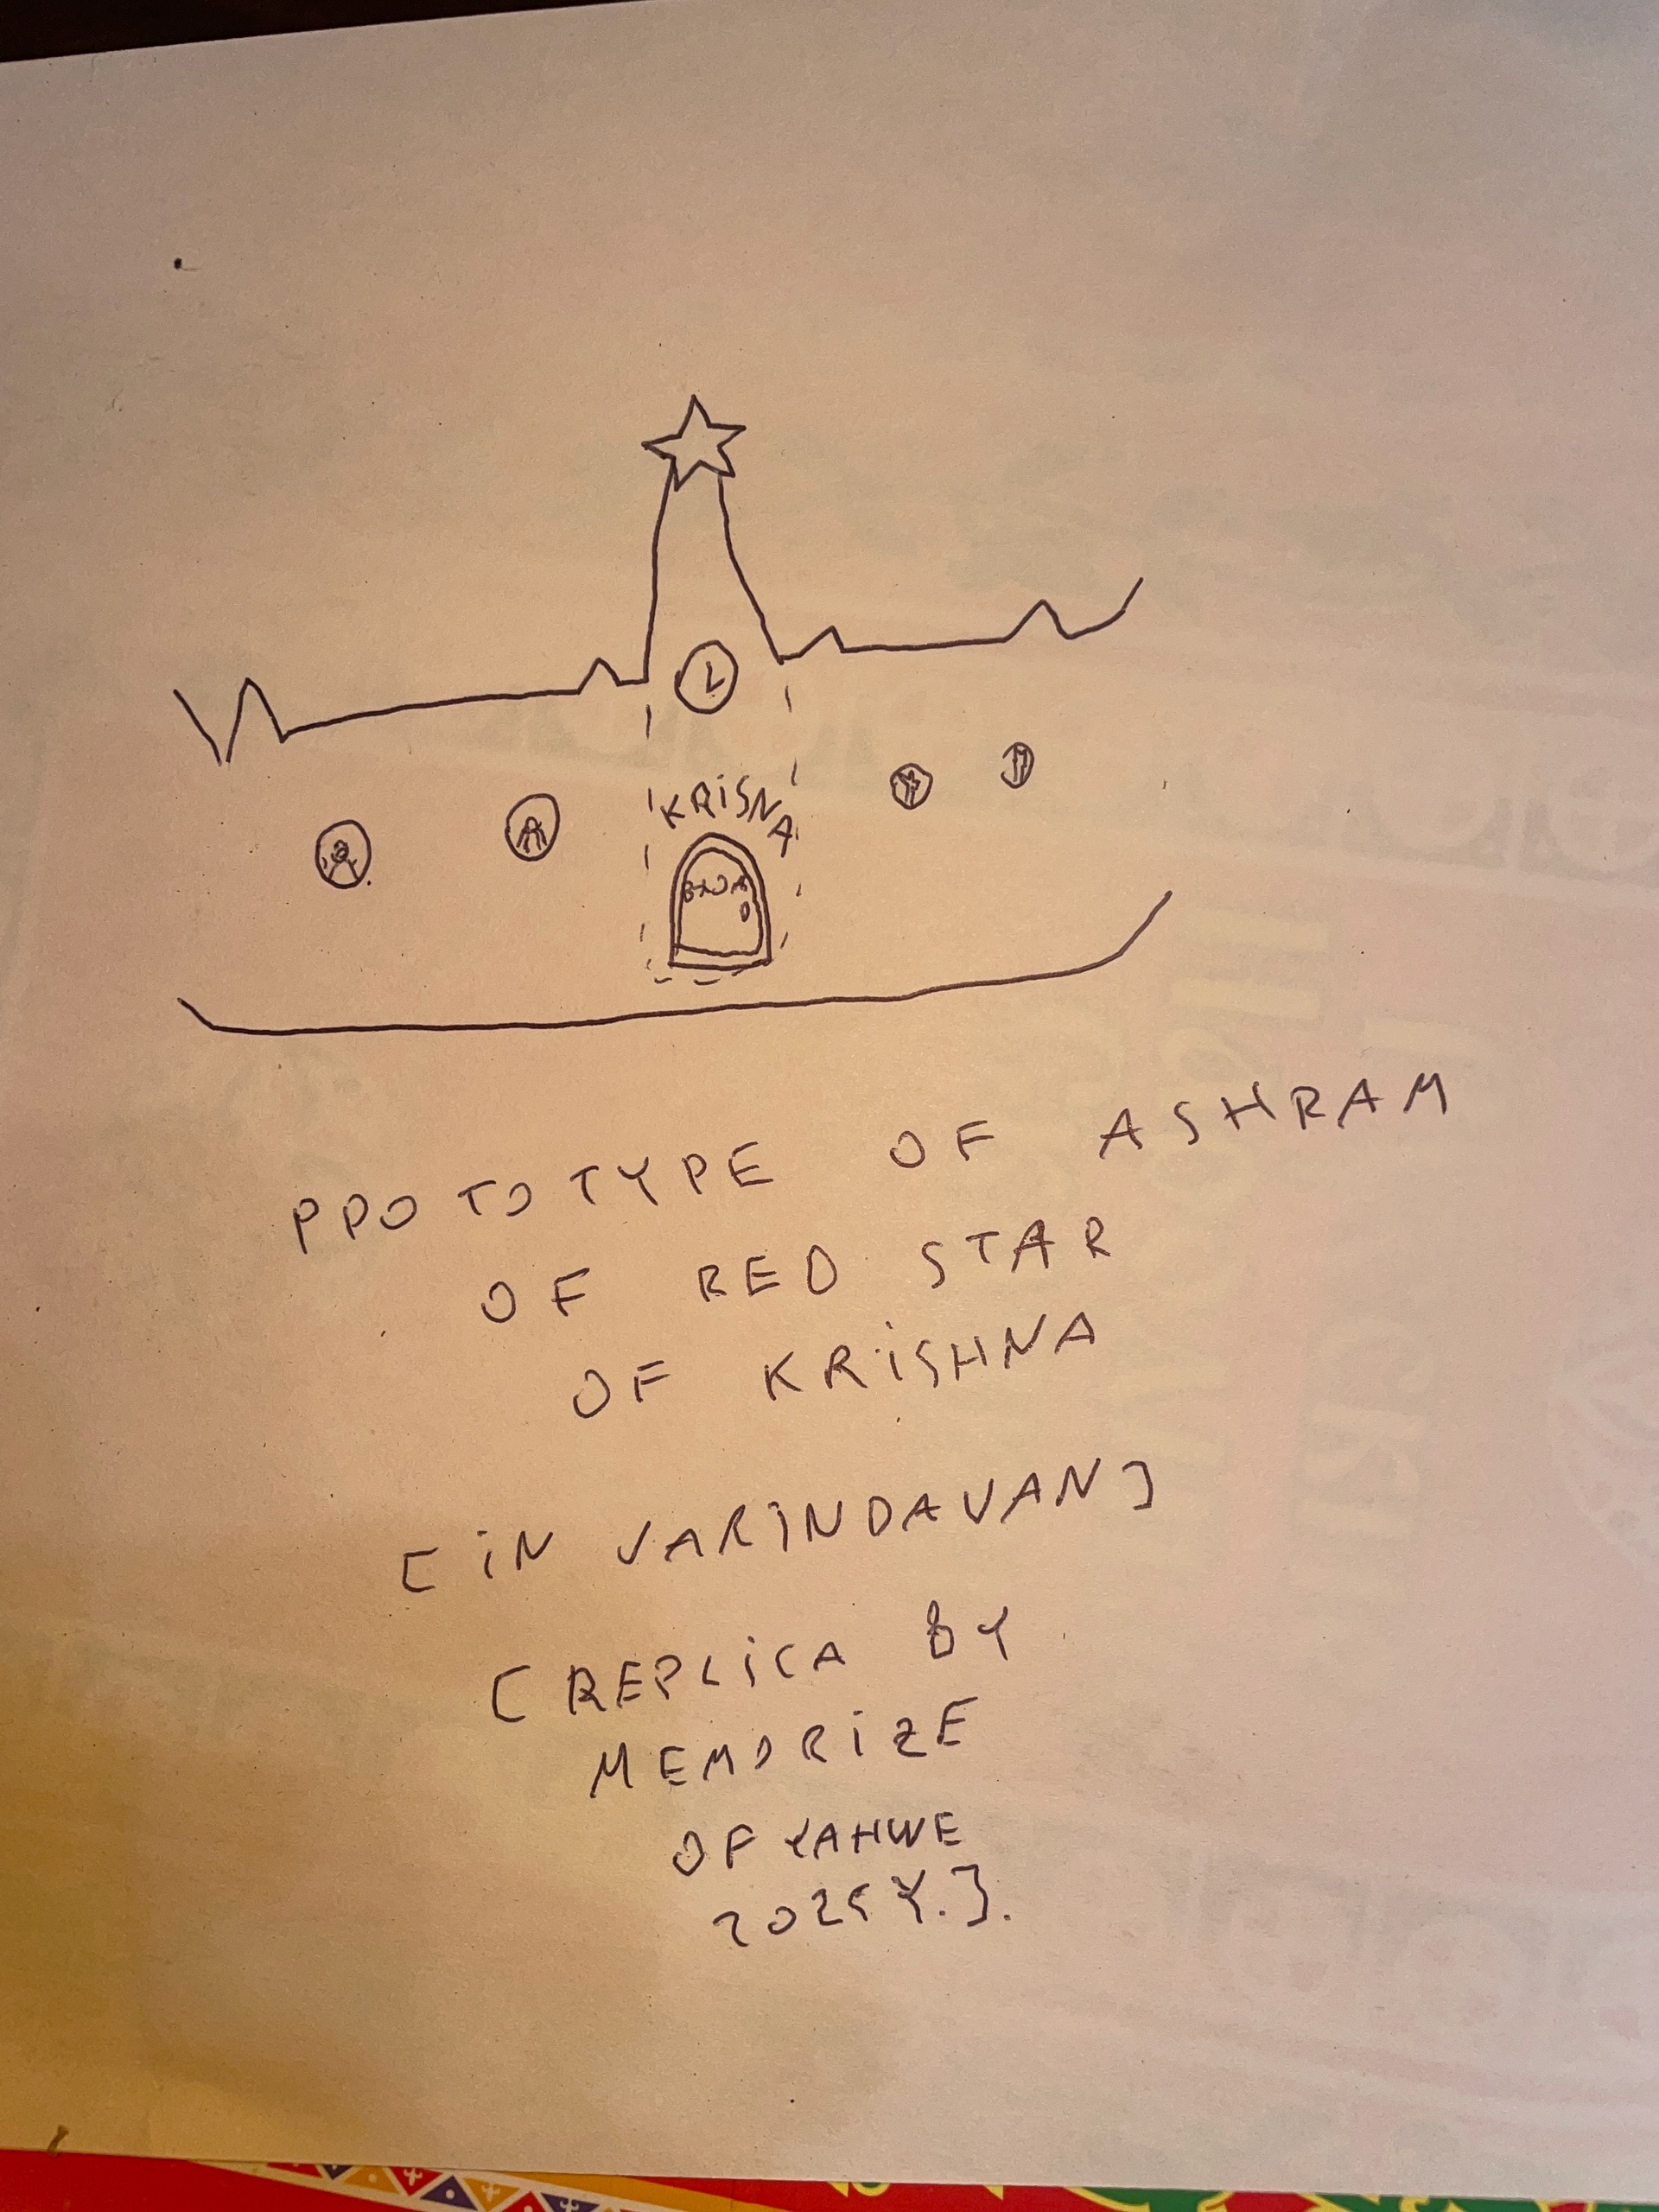 KRISNA
PPOTOTYPE OF ASHRAM
OF RED STAR
OF KRISHNA
[IN VARINDAVAN]
[REPLICA BY
MEMORIZE
OF YAHWE
2025 Y.].